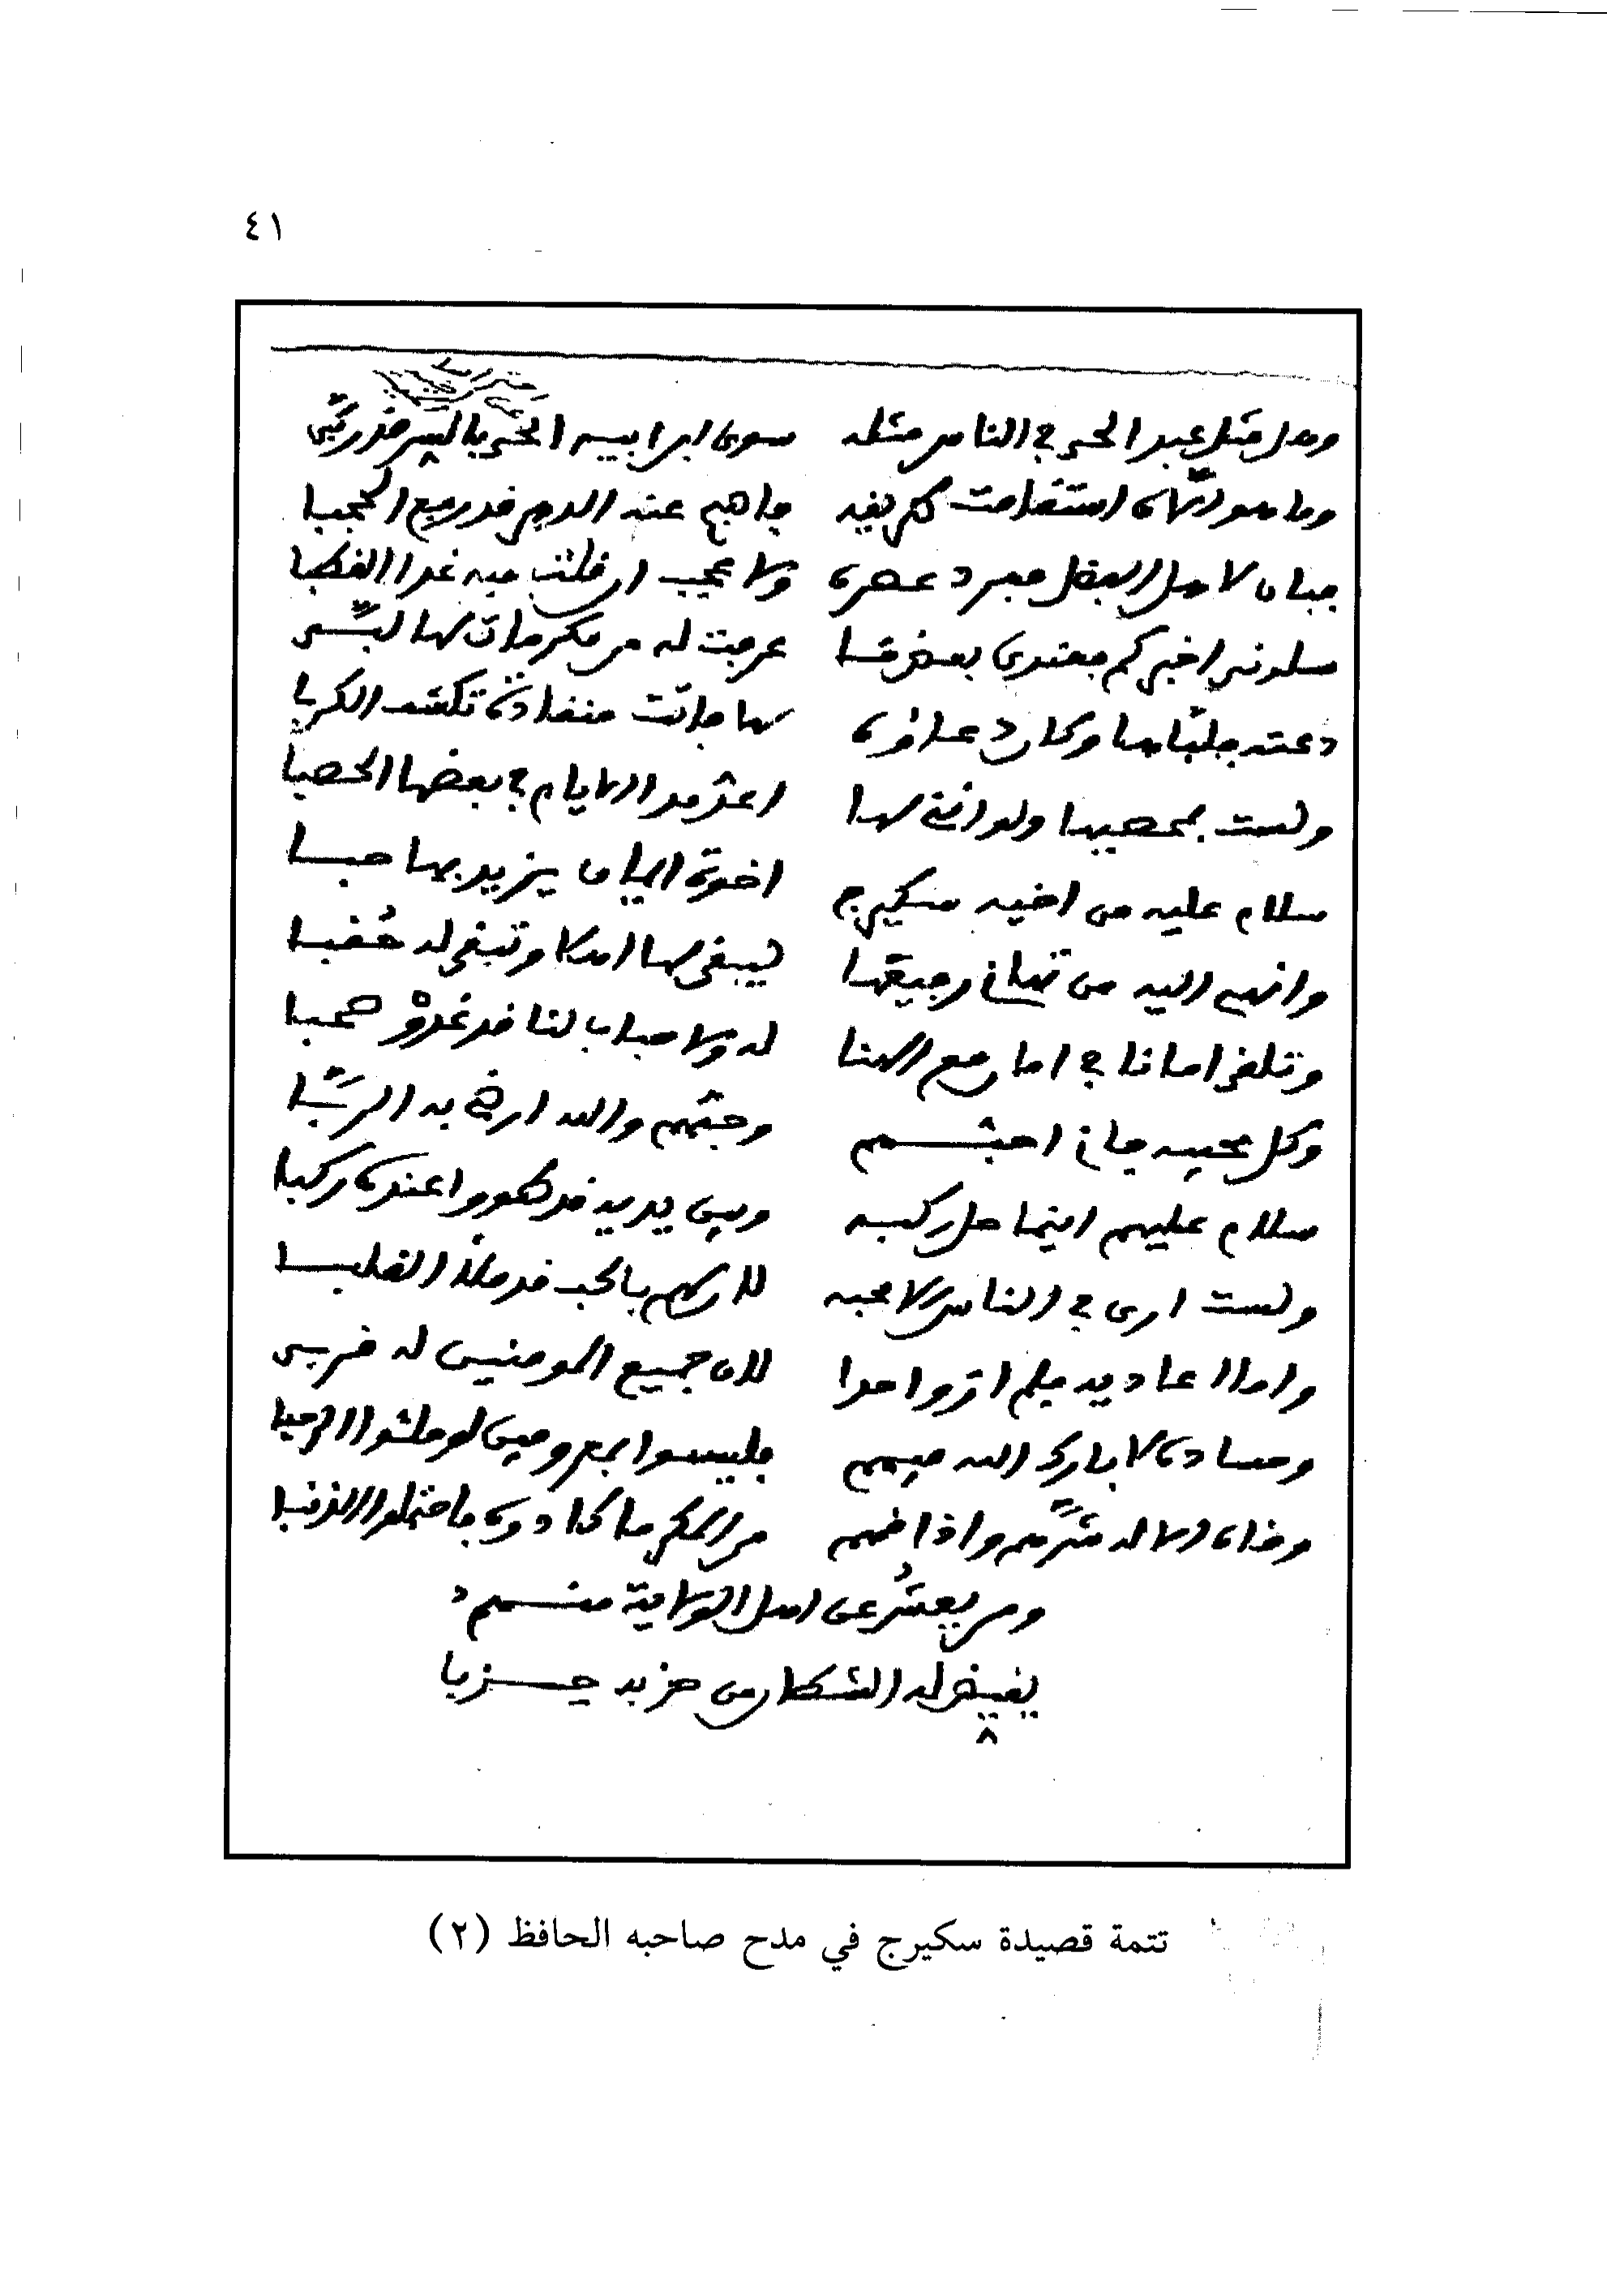 ٤١
وهل مثل عبد الحي في الناس مثله سوى ابن ابيه الحبر بالبر قد ربّي
وما هو الا من استقامت طريقه عنه الدهر قد رفع الحجبا
فبان لاهل الفضل مفرد عصره ولا عجب ان قلت فيه غدا القطبا
سلوني اخبركم فعندي بعض ما عرفت له من مكرمات لها لبّى
دعته فلبّاها وكان دعاؤه لها منقادة تكشف الكربا
ولست بمحصيها ولو انني لها اعد مدا الايام في بعضها الحصبا
سلام عليه من اخيه سكيرج اخوة ايمان يزيد بها حبا
وانهي اليه من تهان رفيعها ليبقى لها اهلا وتبقى له حقبا
وتلقى امانا في امان مع الهنا له ولاحباب لنا قد غدوْا صحبا
وكل محبيه فاني احبهم وحبهم والله ارضي به الربّا
سلام عليهم اينما حل ركبه وبين يديه قد طووا عنده ركبا
ولست ارى في الناس الا محبه لان لهم بالحب قد ملأ القلبا
واما اعاديه فلم ار واحدا لان جميع المومنين له قربى
وحساده لا بارك الله فيهم فليسوا بمعروفين لو ملئوا الرحبا
وذاك الاله شرهم واذاهم من المكر ما كادوه فاحتملوا الذنبا
ومن يعش عن اهل الولاية منهم
يقيض له الشيطان من حزبه حزبا
تتمة قصيدة سكيرج في مدح صاحبه الحافظ (٢)